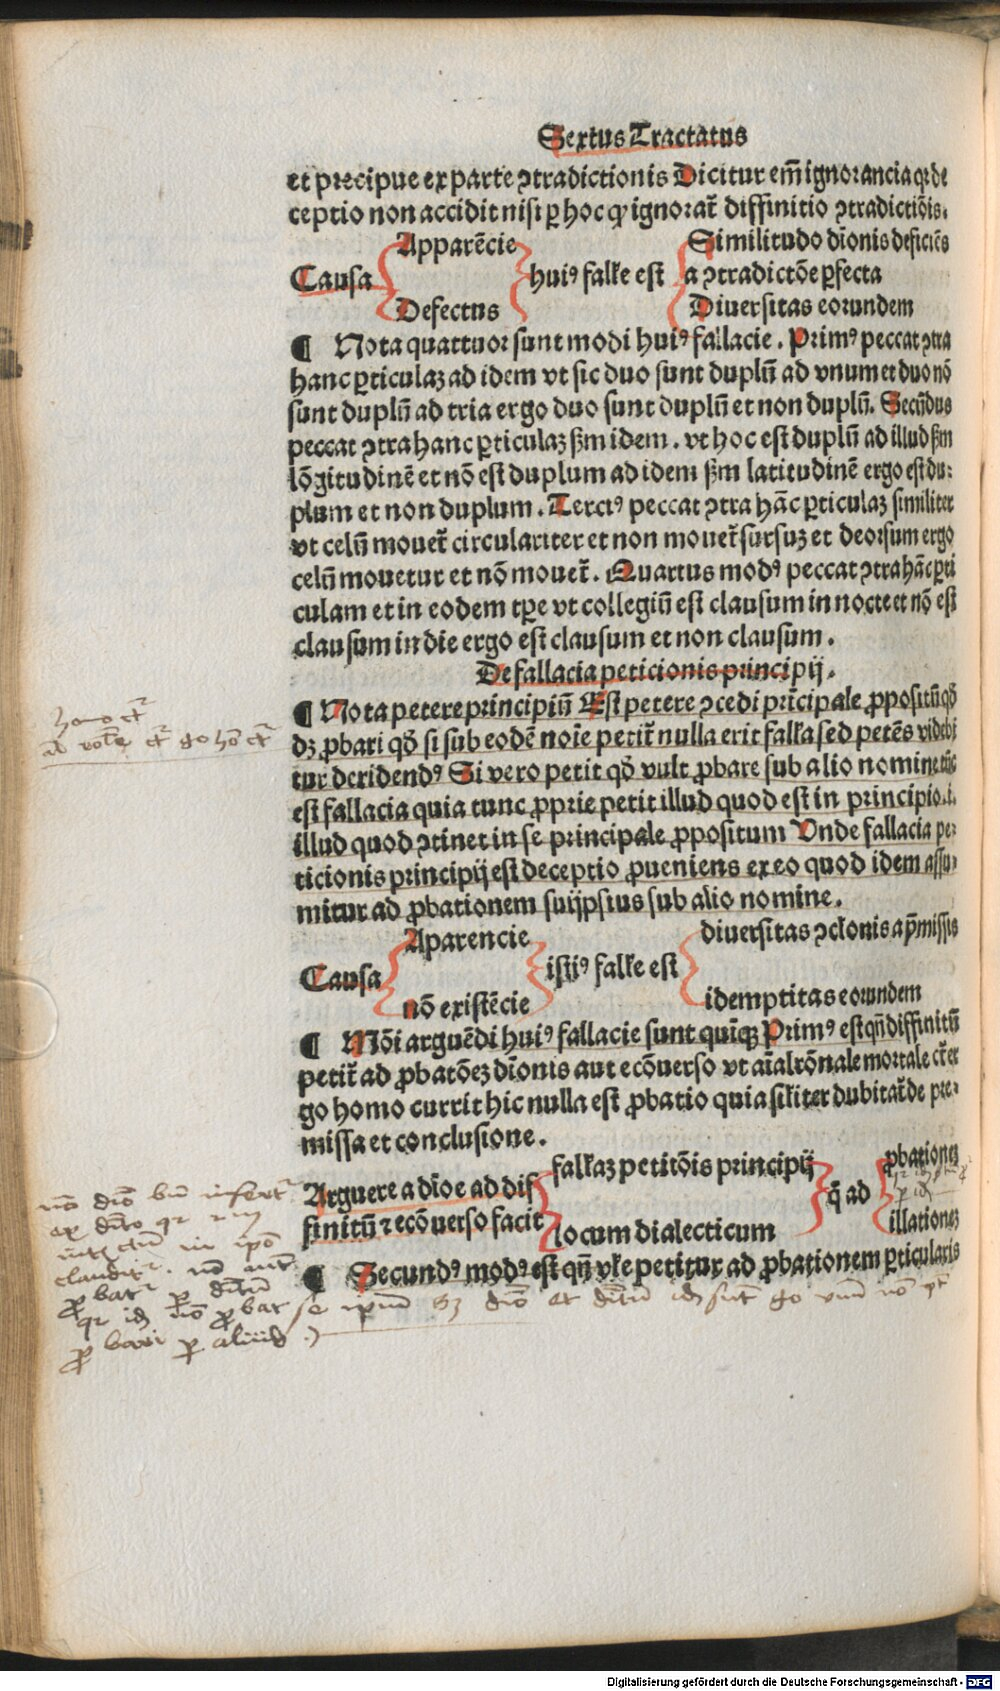 Sextus Tractatus
et precipue ex parte ↄtradictionis Dicitur em̄ ignorancia qꝛ de
ceptio non accidit nisi ꝑ hoc ꝙ ignorat᷑ diffinitio ↄtradictiōis.
Apparēcie
Similitudo dīonis deficiēs
Causa
huiꝰ falłe est
a ↄtradictōe ꝑfecta
Defectus
Diuersitas eorundem
¶ Nota quattuor sunt modi huiꝰ fallacie. Primꝰ peccat ↄtra
hanc ꝑticulaꝫ ad idem vt sic duo sunt duplū ad vnum et duo nō
sunt duplū ad tria ergo duo sunt duplū et non duplū. Secūdus
peccat ↄtra hanc ꝑticulaꝫ ẜm idem. vt hoc est duplū ad illud ẜm
lōgitudinē et nō est duplum ad idem ẜm latitudinē ergo est du⸗
plum et non duplum. Terciꝰ peccat ↄtra hāc ꝑticulaꝫ similiter
vt celū mouet᷑ circulariter et non mouet᷑ sursuꝫ et deorsum ergo
celū mouetur et nō mouet᷑. Quartus modꝰ peccat ↄtra hāc ꝑti
culam et in eodem tꝑe vt collegiū est clausum in nocte et nō est
clausum in die ergo est clausum et non clausum.
De fallacia peticionis principij.
¶ Nota petere principiū Est petere ↄcedi prīcipale ꝓpositū qd̄
dꝫ ꝓbari qd̄ si sub eodē noīe petit᷑ nulla erit falła sed petēs videbi
tur deridendꝰ Si vero petit qd̄ vult ꝓbare sub alio nomine tūc
est fallacia quia tunc ꝓprie petit illud quod est in principio .i.
illud quod ↄtinet in se principale ꝓpositum Unde fallacia pe⸗
ticionis principij est deceptio ꝓueniens ex eo quod idem assu⸗
mitur ad ꝓbationem suijpsius sub alio nomine.
Aparencie
diuersitas ↄcłonis a p̄missis
Causa
istiꝰ falłe est
nō existēcie
idemptitas eorundem
¶ Mōi arguēdi huiꝰ fallacie sunt quīqꝫ Primꝰ est qn̄ diffinitū
petit᷑ ad ꝓbatōeꝫ dīonis aut ecōuerso vt aīal rōnale mortale cr̄t er
go homo currit hic nulla est ꝓbatio quia siłiter dubitat᷑ de pre⸗
missa et conclusione.
fallaꝫ petitōis principij
ꝓbationeꝫ
Arguere a dīoe ad dif
q̄ ad
finitū ⁊ ecōuerso facit
locum dialecticum
illationeꝫ
¶ Secundꝰ modꝰ est qn̄ vłe petitur ad ꝓbationem ꝑticularis
se ipm̄ sꝫ dīo et dītū id sūt go vnū nō
ꝓbari ꝑ aliud